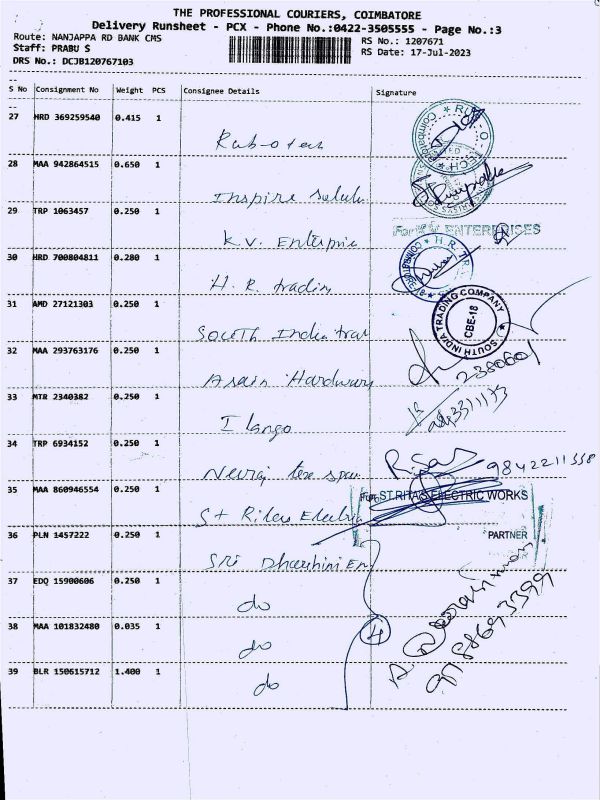 THE PROFESSIONAL COURIERS, COIMBATORE
Delivery Runsheet - PCX - Phone No.:0422-3505555 - Page No.:3
Route: NANJAPPA RD BANK CMS
RS No.: 1207671
Staff: PRABU S
RS Date: 17-Jul-2023
DRS No.: DCJB120767103
S No Consignment No Weight PCS Consignee Details Signature
27 HRD 369259540 0.415 1
Rub-o tech
28 MAA 942864515 0.650 1
Inspire
29 TRP 1063457 0.250 1
For K.V. ENTERPRISES
K.V. Enterprie
30 HRD 700804811 0.280 1
H.R. TR
H. R. trading
31 AMD 27121303 0.250 1
SOUTH INDIA TRADING COMPANY
CBE-18
South India trad
32 MAA 293763176 0.250 1
2380601
Hardware
33 MTR 2340382 0.250 1
I lango
34 TRP 6934152 0.250 1
9842211338
Neeraj tex spar
35 MAA 860946554 0.250 1
For ST.RITAS ELECTRIC WORKS
St Ritas Electri
36 PLN 1457222 0.250 1
PARTNER
Sri Dharshini En
37 EDQ 15900606 0.250 1
do
38 MAA 101832480 0.035 1
4
do
39 BLR 150615712 1.400 1
9788693399
do